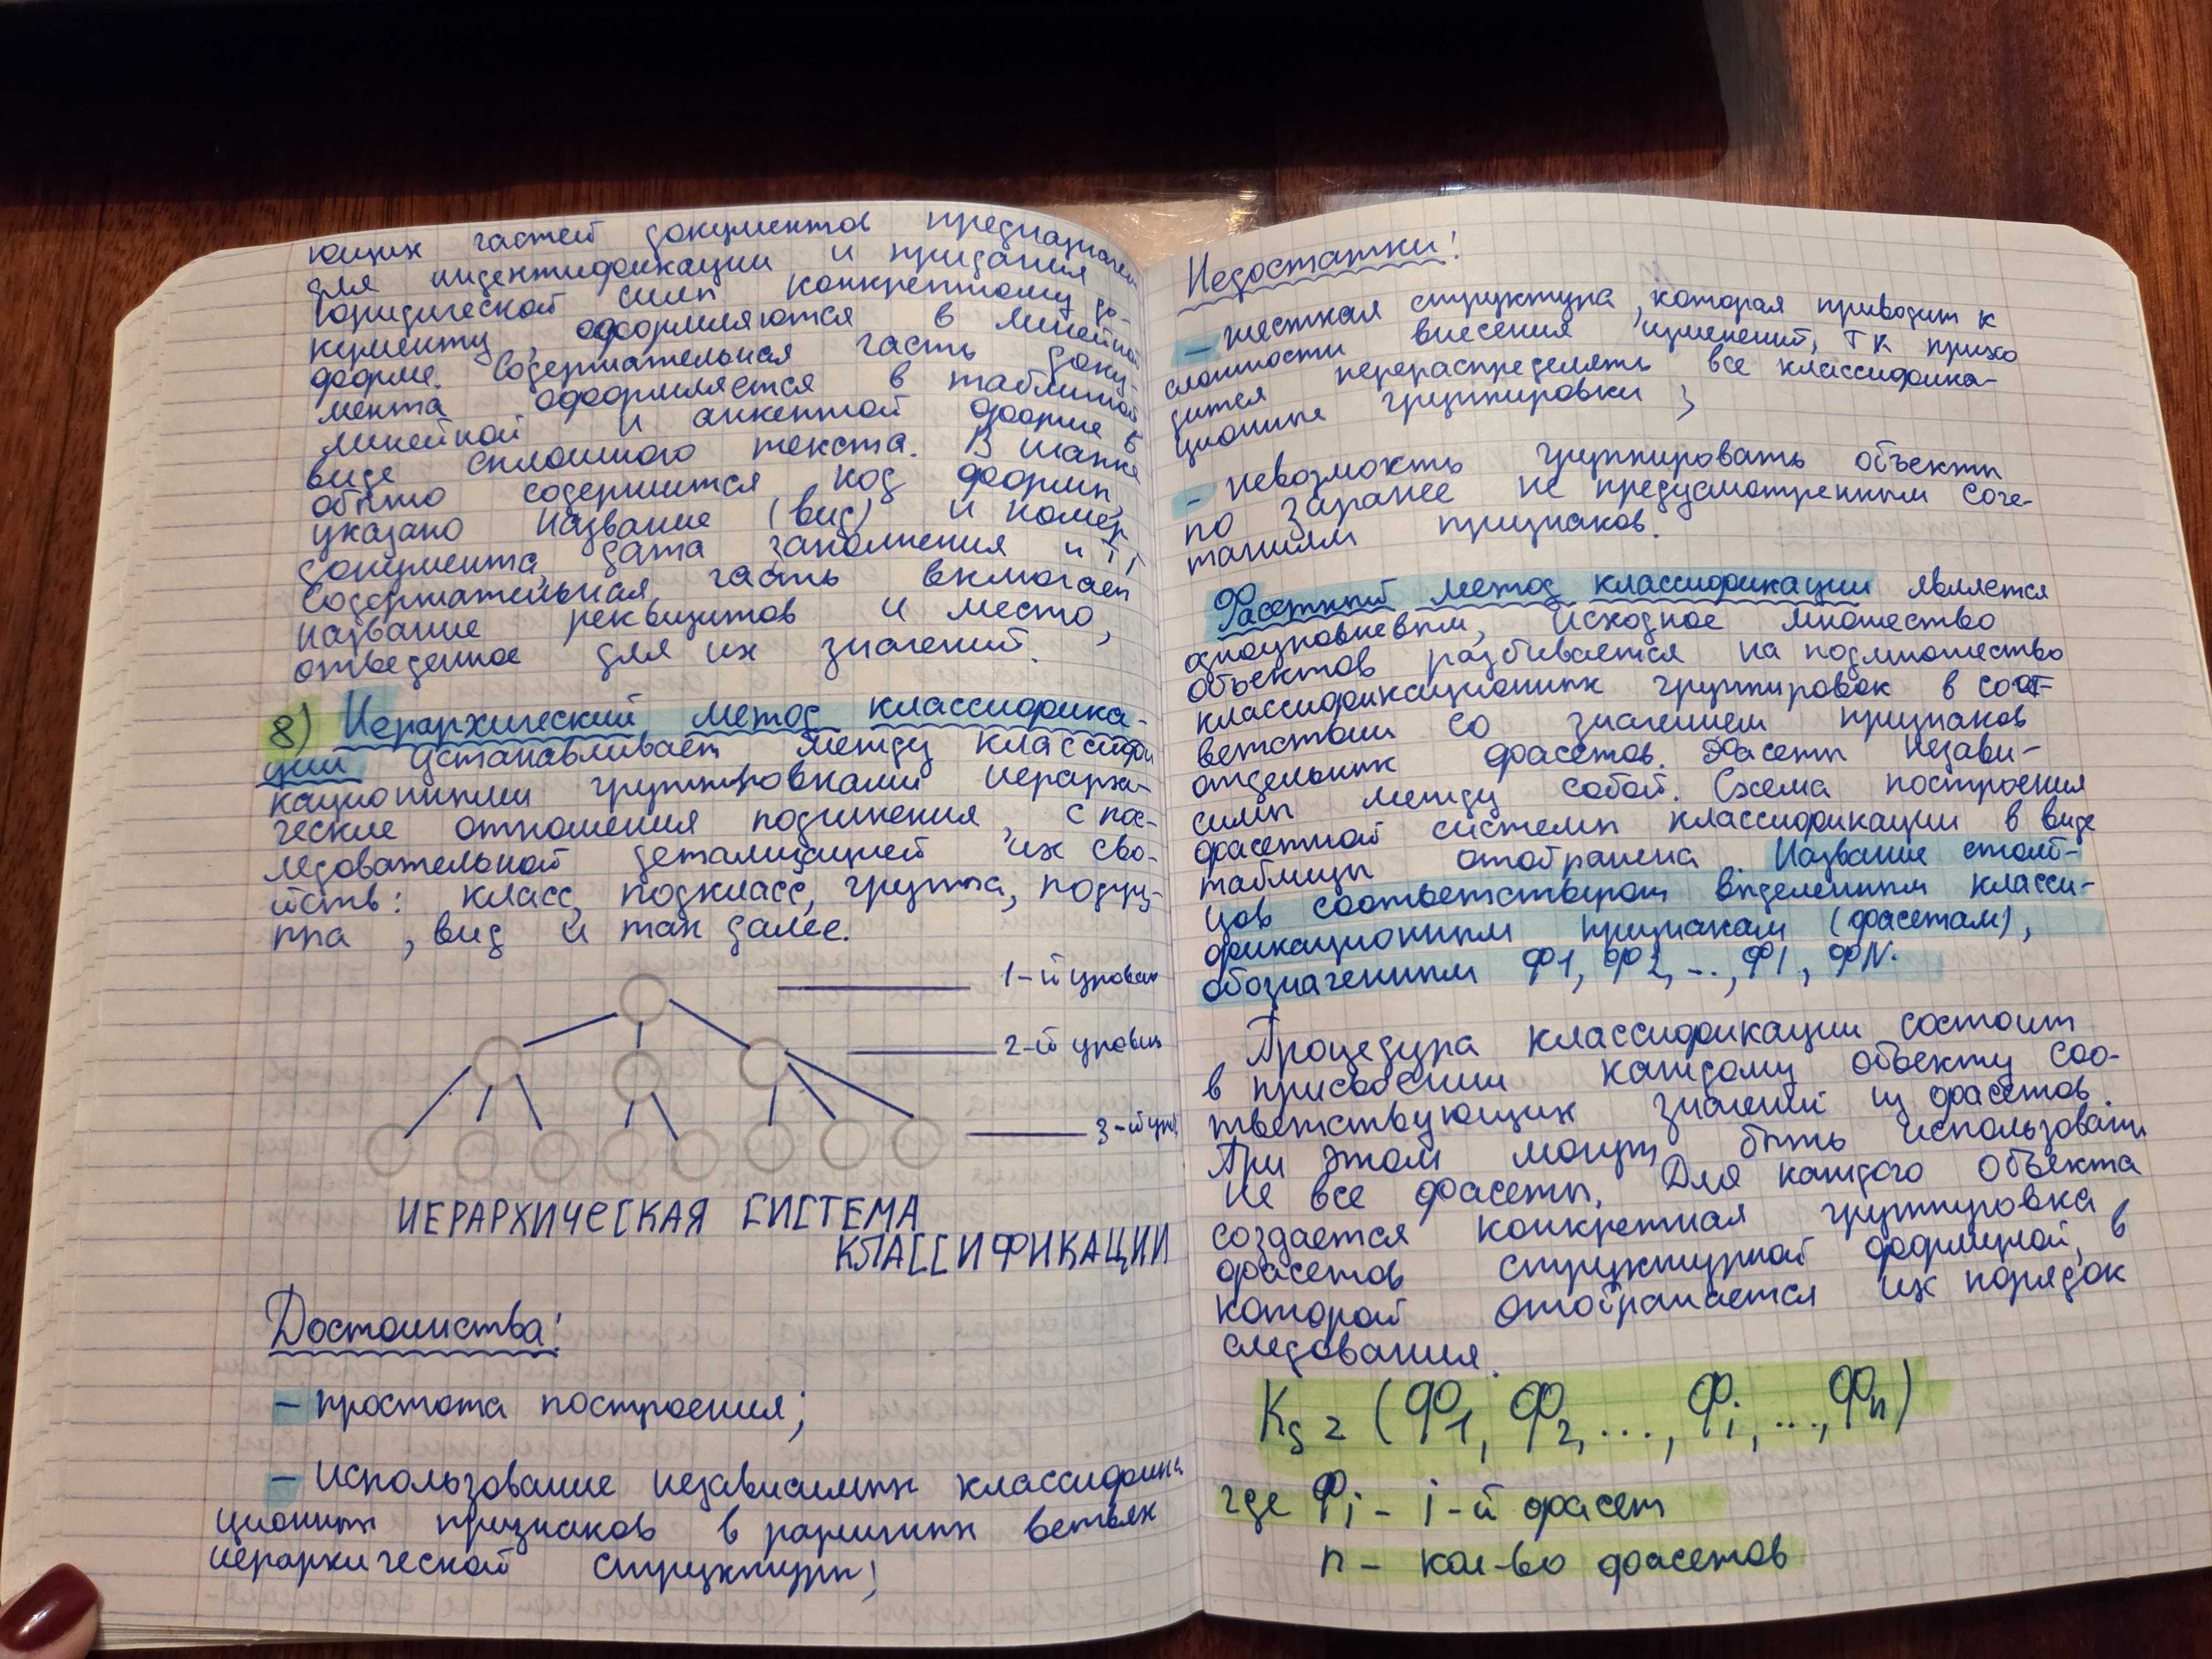 ющих частей документов предназначен
для индентификации и придания
юридической силы конкретному до-
кументу, оформляются в линейной
форме. Содержательная часть доку-
мента оформляется в табличной
линейной и анкетной форме в
виде сплошного текста. В шапке
обыто содержится код формы,
указано название (вид) и номер
документа, дата заполнения и тд
Содержательная часть включает
название реквизитов и место,
отведенное для их значений.
8) Иерархический метод классифика-
ции устанавливает между классифи
кационными группировками иерархи-
ческие отношения подчинения, с пос-
ледовательной детализацией их сво-
йств: класс, подкласс, группа, подгру-
ппа, вид и так далее.
1-й уровень
2-й уровень
3-й ур.
ИЕРАРХИЧЕСКАЯ СИСТЕМА
КЛАССИФИКАЦИИ
Достоинства:
- простота построения;
- использование независимых классифика
ционных признаков в различных ветвях
иерархической структуры;
Недостатки!
- жесткая структура, которая приводит к
сложности внесения изменений, тк прихо
дится перераспределять все классифика-
ционные группировки;
- невозможть группировать объекты
по заранее не предусмотренным соче-
таниям признаков.
Фасетный метод классификации является
одноуровневым, исходное множество
объектов разбивается на подмножество
классификационных группировок в соот-
ветствии со значением признаков
отдельных фасетов. Фасеты незави-
симы между собой. Схема построения
фасетной системы классификации в виде
таблицы отображена. Название столб-
цов соответствуют выделенным класси-
фикационным признакам (фасетам),
обозначенным Ф1, Ф2, ..., Фi, ФN.
Процедура классификации состоит
в присвоении каждому объекту соо-
тветствующих значений из фасетов.
При этом могут быть использованы
не все фасеты. Для каждого объекта
создается конкретная группировка
фасетов структурной формулой, в
которой отображается их порядок
следования.
Ks = (Ф1, Ф2, ..., Фi, ..., Фn)
где Фi - i-й фасет
n - кол-во фасетов